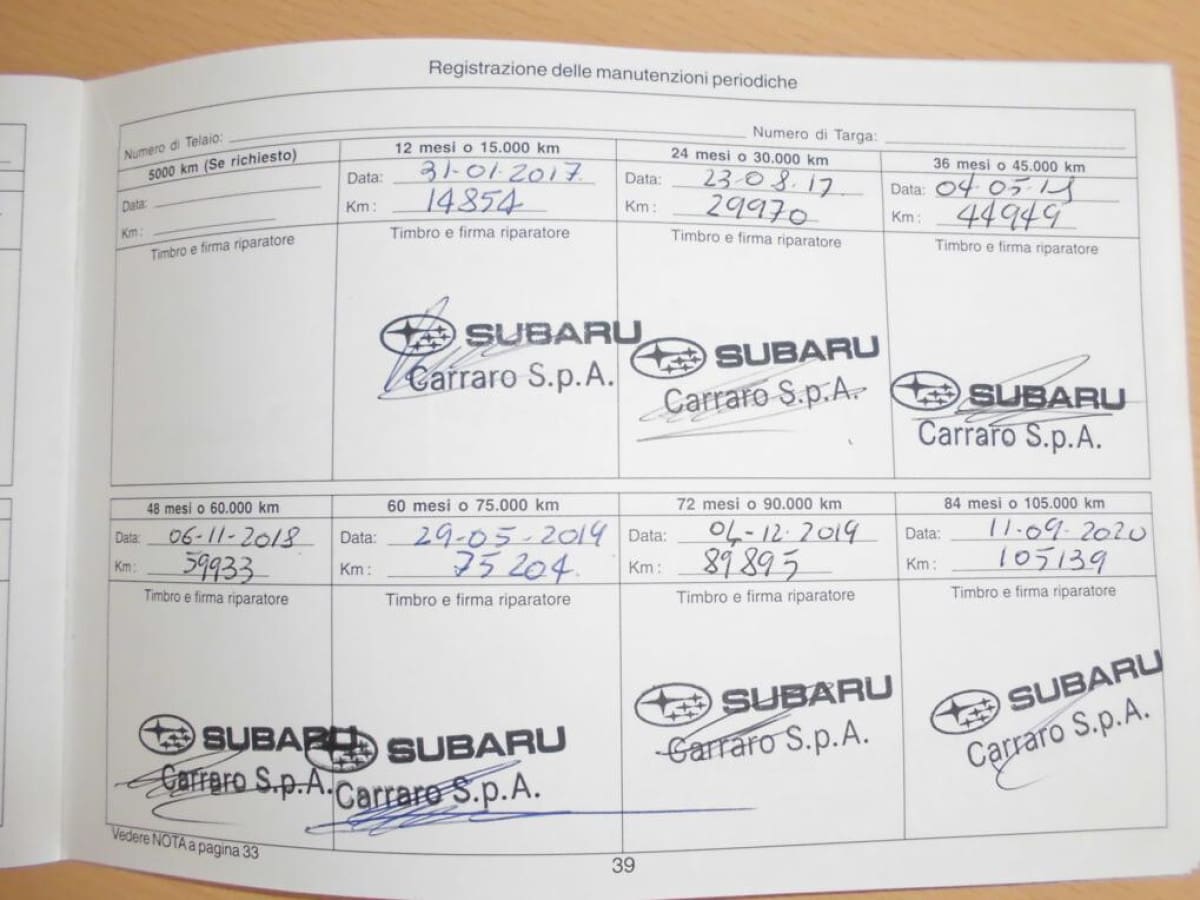 Registrazione delle manutenzioni periodiche
Numero di Telaio: Numero di Targa:
5000 km (Se richiesto)
Data:
Km :
Timbro e firma riparatore
12 mesi o 15.000 km
Data: 31-01-2017
Km : 14854
Timbro e firma riparatore
SUBARU
Carraro S.p.A.
24 mesi o 30.000 km
Data: 23-08.17
Km : 29970
Timbro e firma riparatore
SUBARU
Carraro S.p.A.
36 mesi o 45.000 km
Data:
Km : 44949
Timbro e firma riparatore
SUBARU
Carraro S.p.A.
48 mesi o 60.000 km
Data: 06-11-2018
Km : 59933
Timbro e firma riparatore
SUBARU
Carraro S.p.A.
60 mesi o 75.000 km
Data: 29-05-2019
Km : 75204
Timbro e firma riparatore
SUBARU
Carraro S.p.A.
72 mesi o 90.000 km
Data: 04-12-2019
Km : 89895
Timbro e firma riparatore
SUBARU
Carraro S.p.A.
84 mesi o 105.000 km
Data: 11-09-2020
Km : 105139
Timbro e firma riparatore
SUBARU
Carraro S.p.A.
Vedere NOTA a pagina 33
39